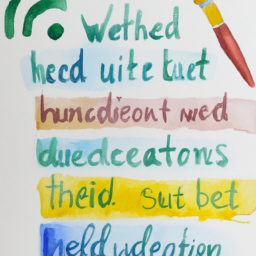 Wethed
hecd uite tuet
huncdieont wed
duedceatons
theid. Sut bet
heldudeotion